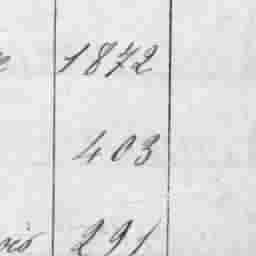 1872
403
291